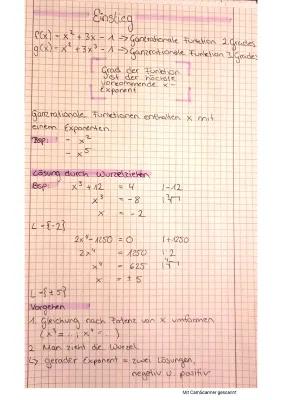 Einstieg
f(x) = x² + 3x - 1 → Ganzrationale Funktion 2. Grades
g(x) = x³ + 3x² - 1 → Ganzrationale Funktion 3. Grades
Grad der Funktion
ist der höchste
vorkommende x-
Exponent
Ganzrationale Funktionen enthalten x mit
einem Exponenten.
Bsp: - x²
- x⁵
Lösung durch Wurzelziehen
Bsp: x³ + 12 = 4 |-12
x³ = -8 |³√
x = -2
L = {-2}
2x⁴ - 1250 = 0 |+1250
2x⁴ = 1250 |:2
x⁴ = 625 |⁴√
x = ± 5
L = {± 5}
Vorgehen
1. Gleichung nach Potenz von x umformen
(x³ = ... ; x⁴ = ... )
2. Man zieht die Wurzel
↳ gerader Exponent = zwei Lösungen,
negativ u. positiv
Mit CamScanner gescannt